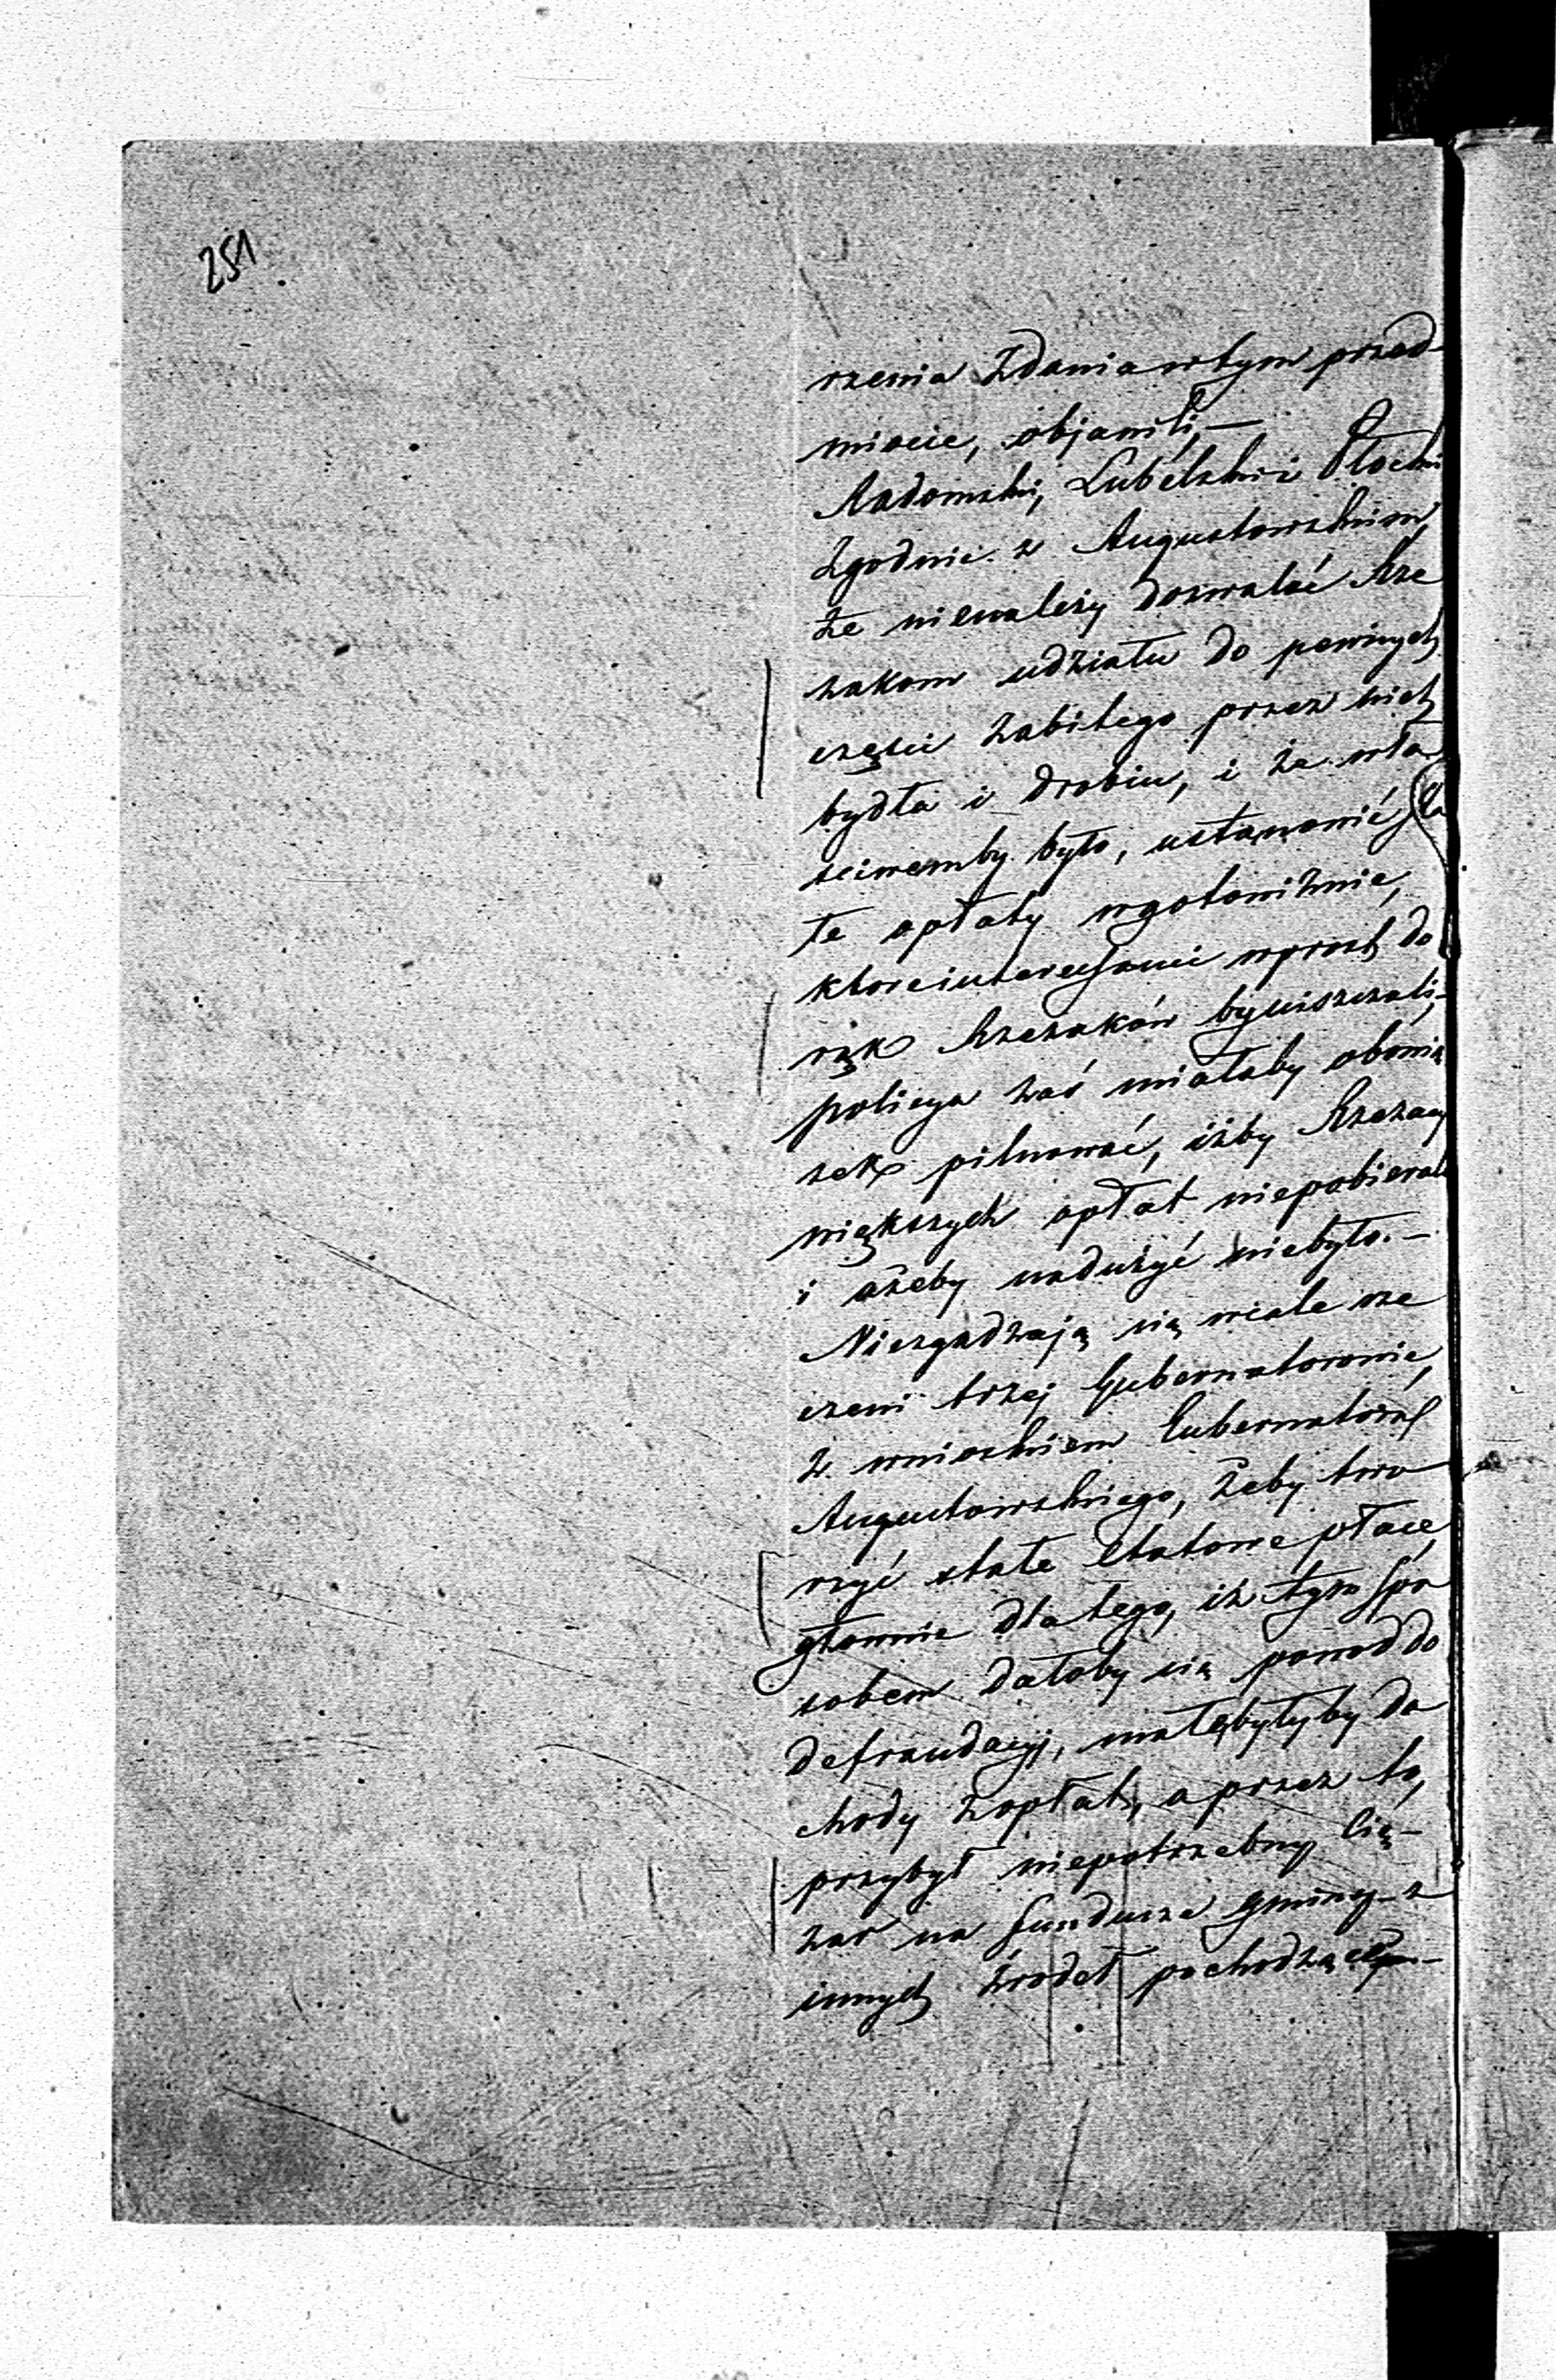 251
rzenia zdania w tym przed-
miocie, objawili, —
Radomski, Lubelski i Płocki
zgodnie z Augustowskim,
że nienależy dozwalać Rze
zakom udziału do pewnych
części zabitego przez nich
bydła i drobiu, i że wła
sciwemby było, ustanowić
te opłaty w gotowiznie,
które interessanci wprost do
rąk Rzezaków by uiszczali,-
policya zaś miałaby obowią
zek pilnować, iżby Rzezacy
większych opłat niepobierali
i ażeby nadużyć niebyło. —
Niezgadzają się wiele rze
czeni trzej Gubernatorowie,
z wnioskiem Gubernatora
Augustowskiego, żeby two
rzyć stałe etatowe płace
głównie dla tego, iż tym spo
sobem dałoby się powod do
defraudacyj, małe byłyby do
chody z opłat, a przez to,
przybył niepotrzebny Cię-
żar na fundusze gminy z
innych źrodeł pochodzące